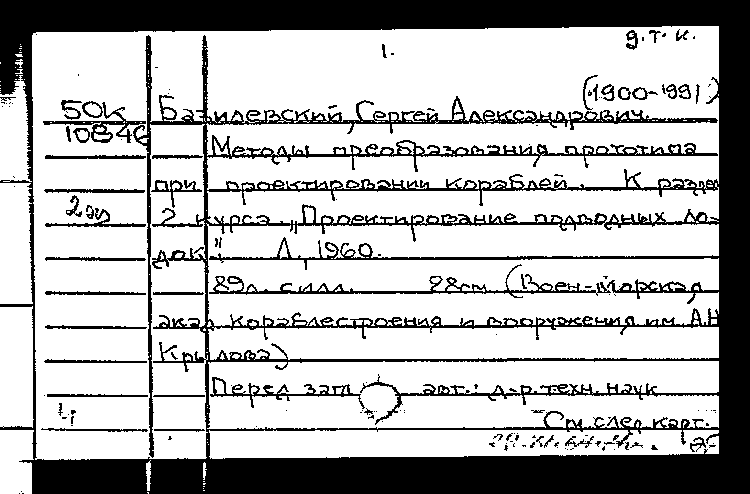 1.
д.т.н.
(1900-1991)
50к Базилевский, Сергей Александрович.
10846
Методы преобразования прототипа
при проектировании кораблей. К разде
2 эк 2 курса „Проектирование подводных ло-
док". Л., 1960.
89л. с илл. 28см (Воен.-Морская
акад. кораблестроения и вооружения им. А.Н
Крылова)
Перед загл авт.: д-р. техн. наук
См. след. карт.